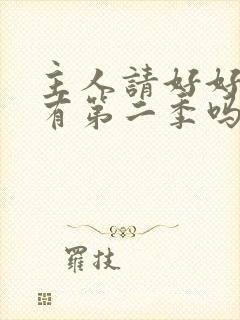 主人請好好
有第二季吗
羅技